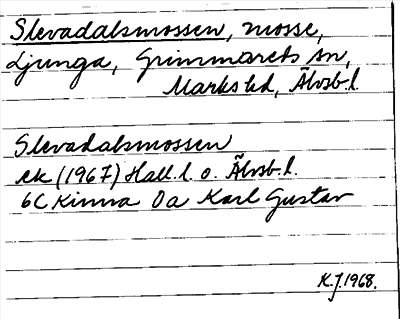 Slevadalsmossen, mosse,
Ljunga, Grimmareds sn,
Marks hd, Älvsb. l.
Slevadalsmossen
ek (1967) Hall. l. o. Älvsb. l.
6C Kinna 0a Karl Gustav
K.J. 1968.